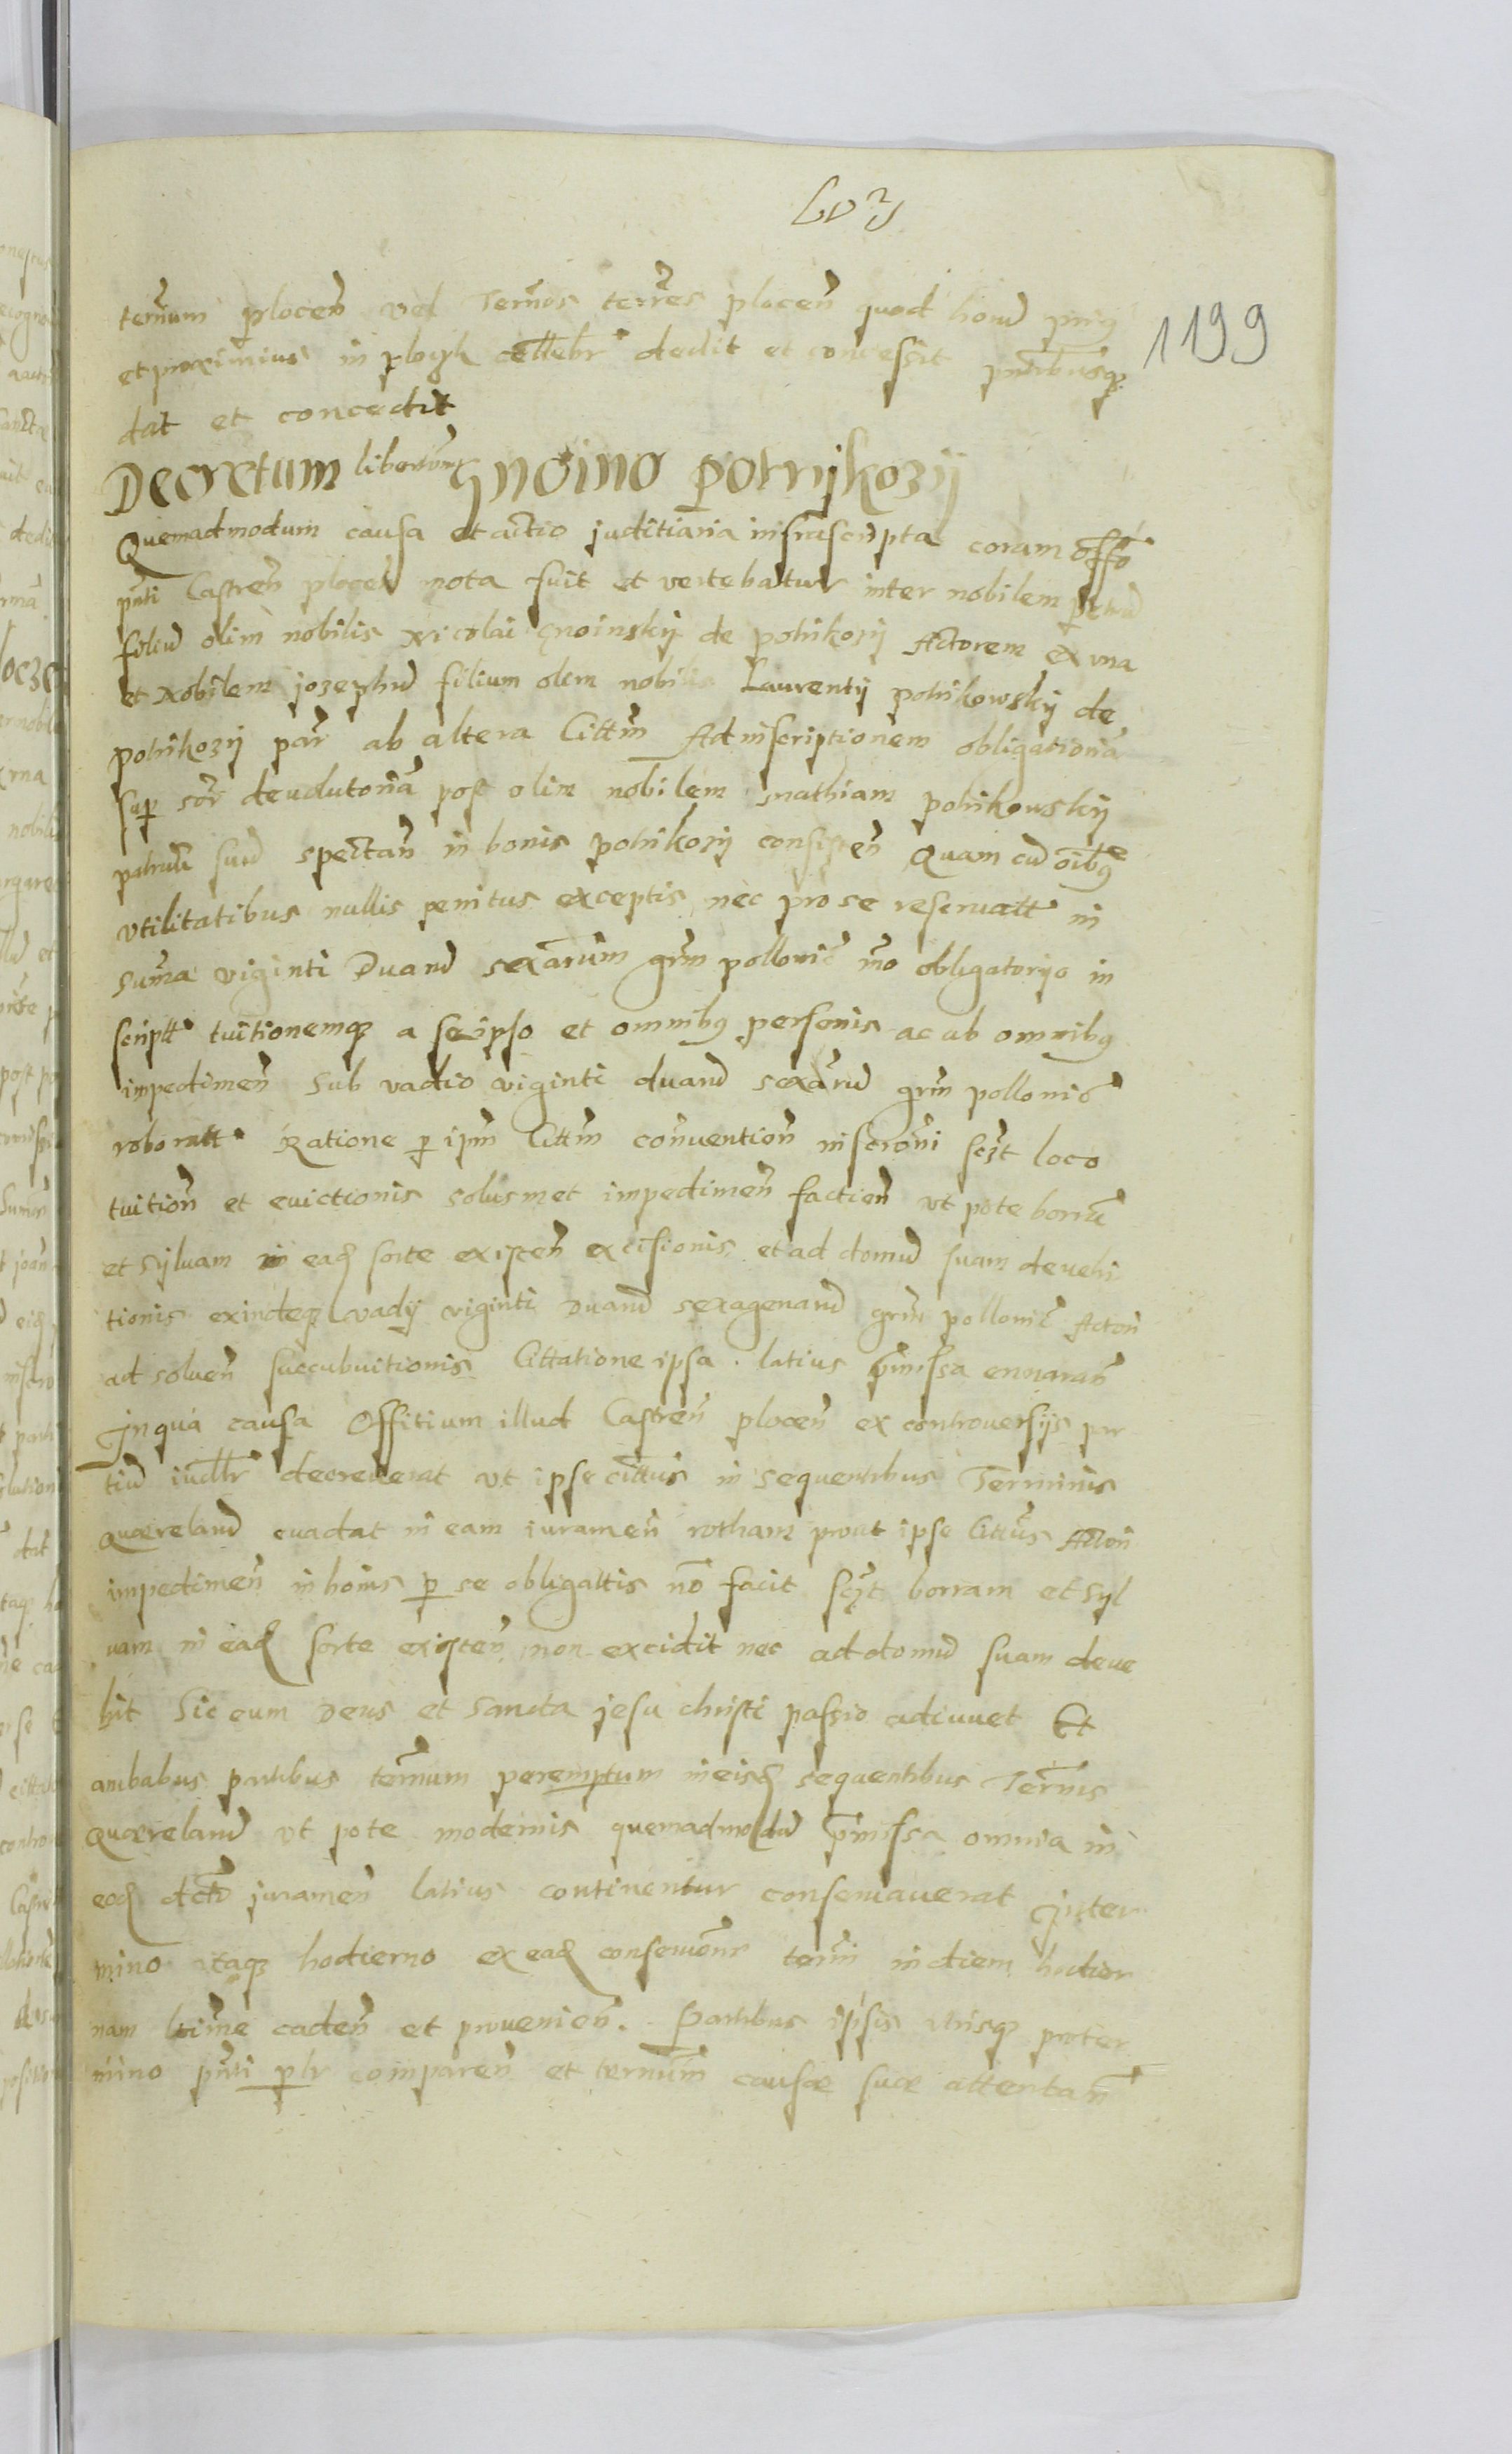 1199
termum plocen vel Termos terres plocen quod horu prius
et proximius in plogk cellebr dedit et concessit pntibusq
dat et concedit
Decretum liberum Gnoino potrijkozij
Quemadmodum causa et actio juditiaria infrascripta coram offo
pnti Castren plocen mota fuit et vertebatur inter nobilem petru
filiu olim nobilis Nicolai Gnoinskij de potrikozij Actorem ex vna
et Nobilem jozephu filium olim nobilis Laurentij potrikowskij de
potrikozij par ab altera Cittm Ad inscriptionem obligatoria
sup sor deuolutoria post olim nobilem mathiam potrikowskij
patruu suu spectan in bonis potrikozij consisten Quam cu oibus
vtilitatibus nullis penitus exceptis nec pro se reseruatt in
suma viginti Duaru sexarum grm pollonic mo obligatorijo in
scriptt tuitionemq a seipso et omnibus personis ac ab omnibus
impedimen sub vadio viginti duaru sexaru grm pollonic
roboratt Ratione p ipm Cittm conuention inscroni sczt loco
tuition et euictionis solusmet impedimen facien vt pote borra
et syluam in ead sorte existen excisionis et ad domu suam deuehi
tionis exindeq vadij viginti Duaru sexagenaru grm pollonic Actori
ad soluen succubuitionis Cittatione ipsa latius pmissa ennaran
In qua causa Offitium illud Castren plocen ex controuersijs par
tiu iudlr decreuerat vt ipse cittus in sequentibus Terminis
Quaerelaru euadat in eam iuramen rotham prout ipse Cittus Actori
impedimen in bonis p se obligattis no facit sczt borram et syl
uam in ead sorte existen non excidit nec ad domu suam deue
hit Sic eum Deus et sancta jesu christi passio adiuuet Et
ambabus partibus termum peremptum in eisd sequentibus Termis
Quaerelaru vt pote modernis quemadmodu pmissa omnia in
eod dcto juramen latius continentur conseruauerat In ter
mino itaq hodierno ex ead conseruone termi in diem hodier
nam ltime caden et prouenien. Partibus ipsis vtrisq pro ter
mino pnti plr comparen et termum causae suae attentan